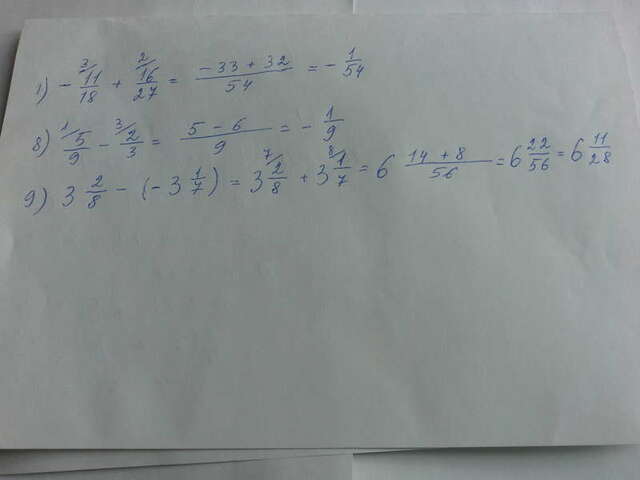 1) - 3/ 11/18 + 2/ 16/27 = (-33 + 32)/54 = - 1/54
8) 1/ 5/9 - 3/ 2/3 = (5 - 6)/9 = - 1/9
9) 3 2/8 - (- 3 1/7) = 3 7/ 2/8 + 3 8/ 1/7 = 6 (14 + 8)/56 = 6 22/56 = 6 11/28